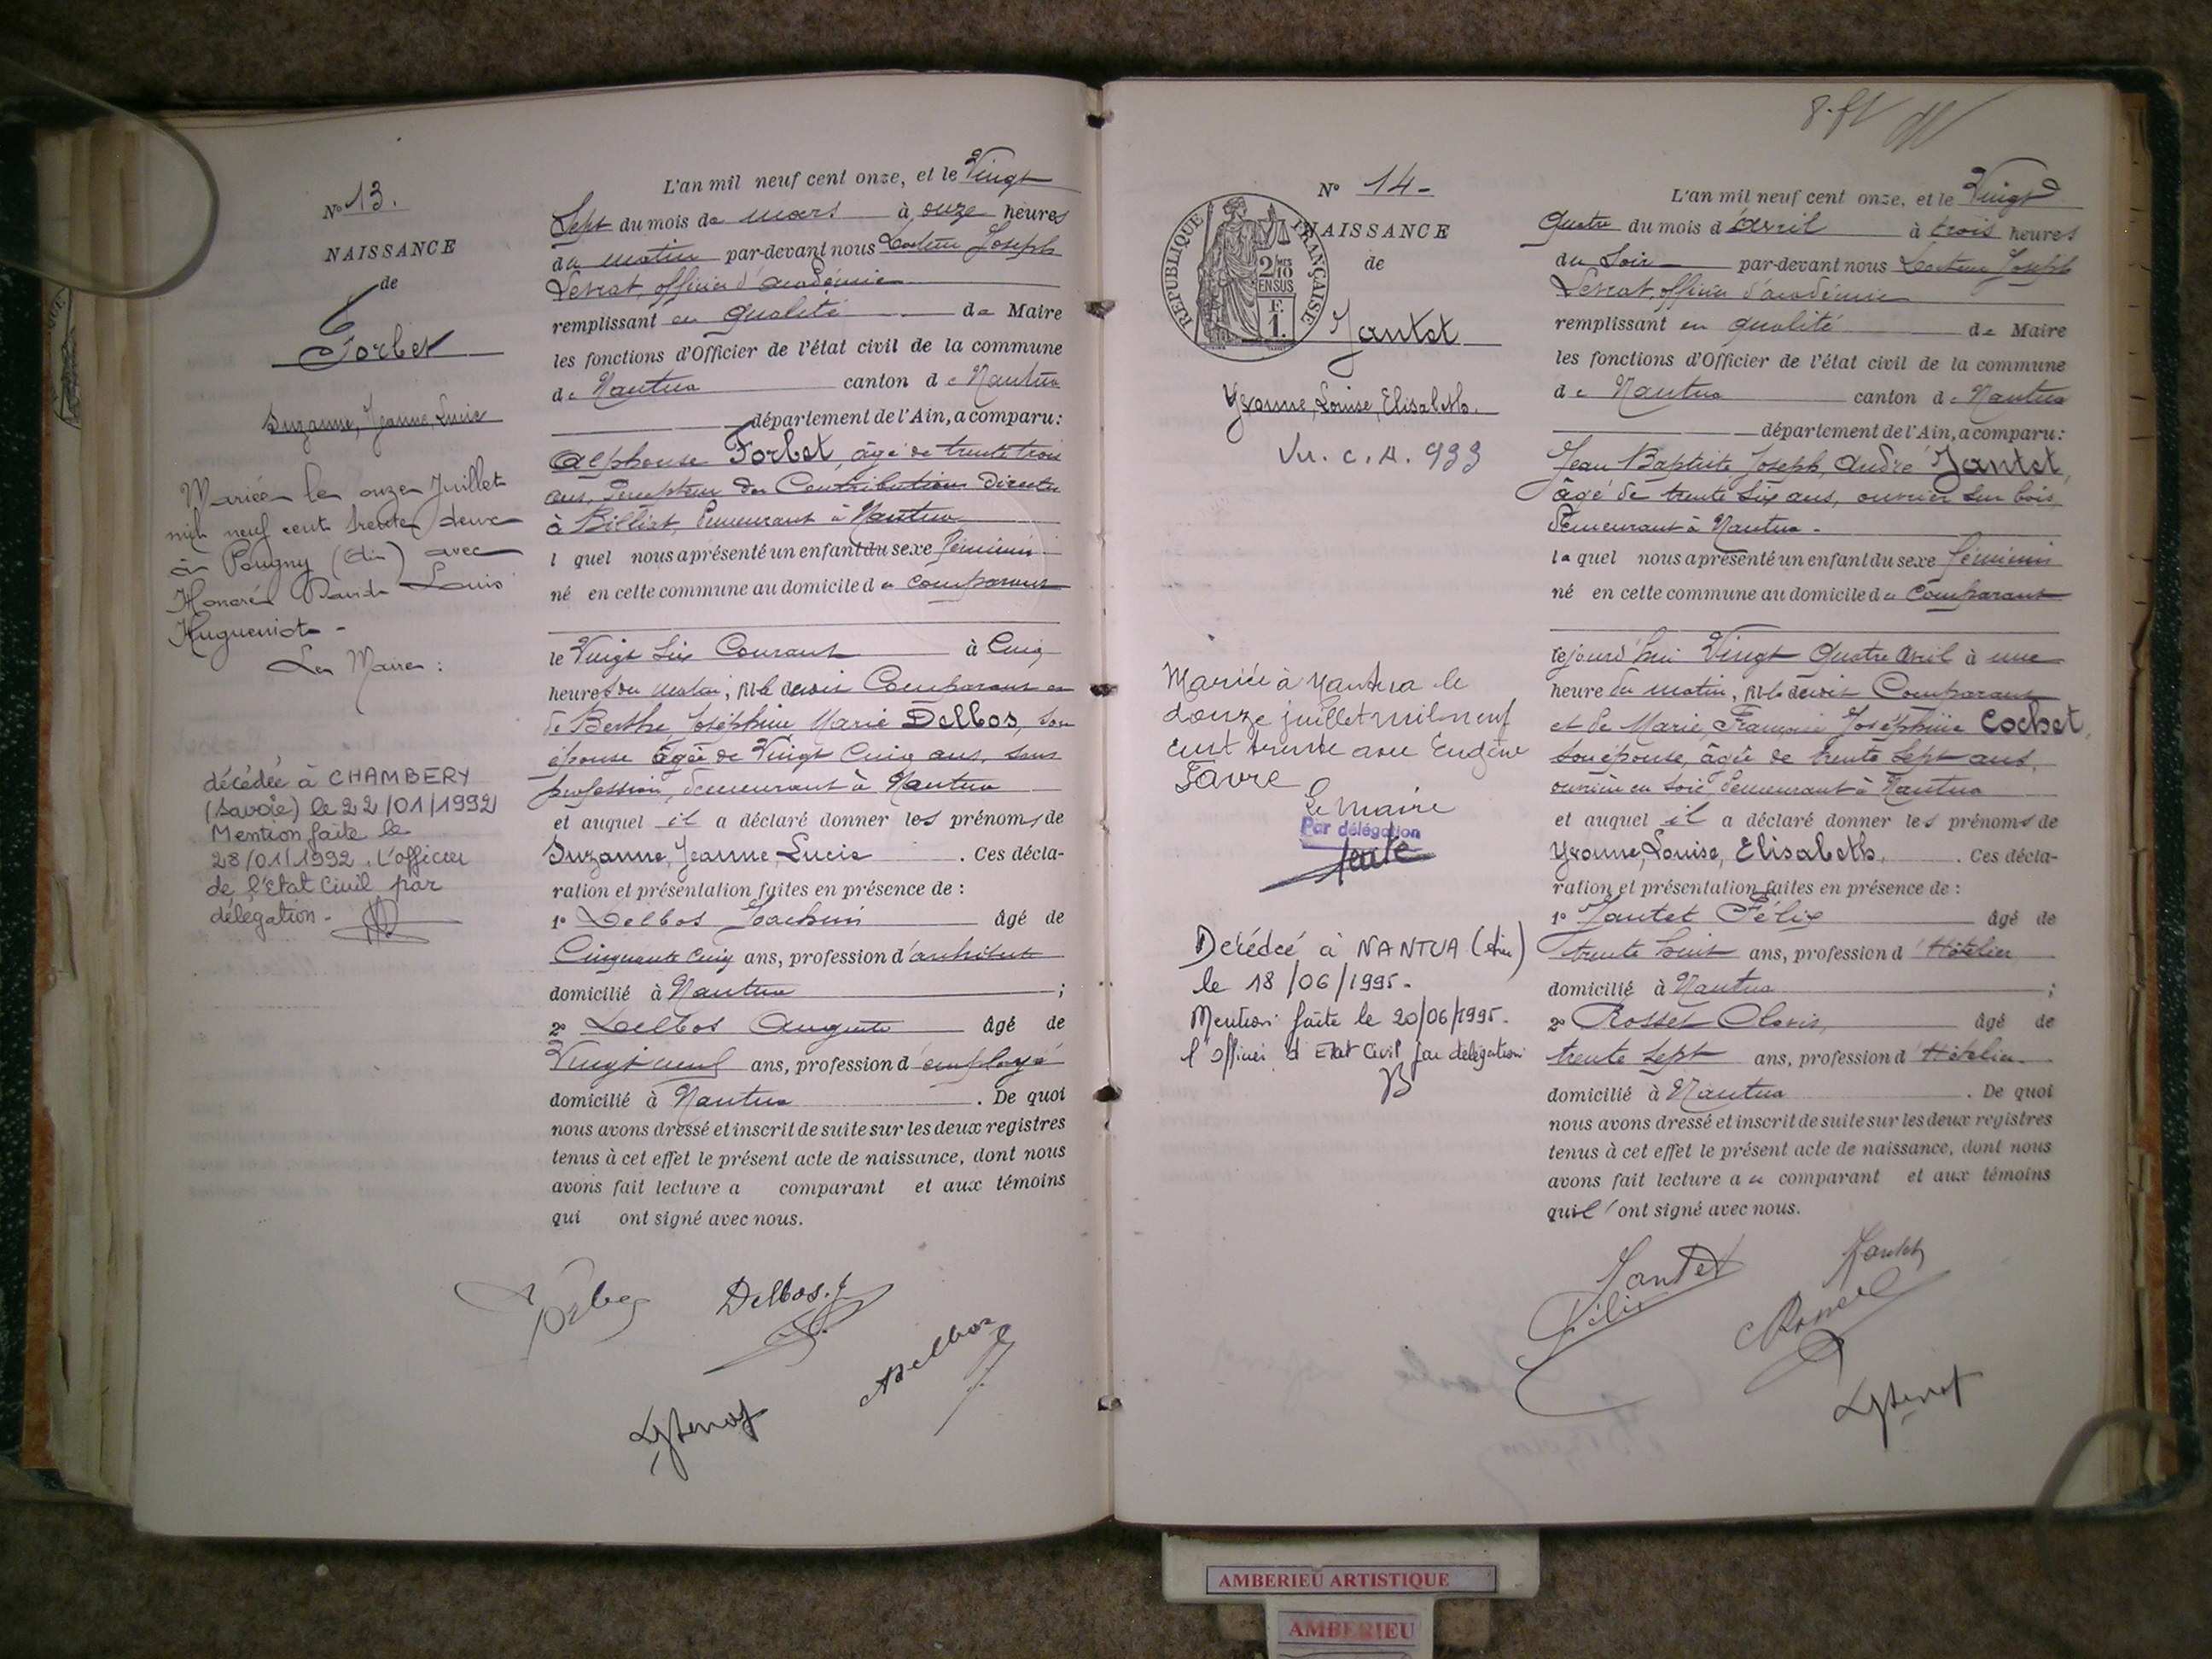 Nº 13.
NAISSANCE
de
Forbet
Suzanne, Jeanne, Lucie
Mariée le onze Juillet
mil neuf cent trente deux
à Pougny (Ain) avec
Honoré David Louis
Hugueniot -
Le Maire :
décédée à CHAMBERY
(Savoie) le 22/01/1992
Mention faite le
28/01/1992. L'officier
de l'Etat Civil par
délégation -
L'an mil neuf cent onze, et le Vingt
Sept du mois de mars à onze heures
du matin par-devant nous Docteur Joseph
Levrat, officier d'académie
remplissant en qualité de Maire
les fonctions d'Officier de l'état civil de la commune
de Nantua canton de Nantua
département de l'Ain, a comparu :
Alphonse Forbet, âgé de trente trois
ans, Percepteur des Contributions Directes
à Billiat, demeurant à Nantua
l quel nous a présenté un enfant du sexe féminin
né en cette commune au domicile du comparant
le Vingt Six Courant à Cinq
heures du matin, fille de Comparant et
de Berthe, Joséphine Marie Delbos, son
épouse âgée de Vingt Cinq ans, sans
profession, demeurant à Nantua
et auquel il a déclaré donner les prénoms de
Suzanne, Jeanne, Lucie . Ces décla-
ration et présentation faites en présence de :
1º Delbos Joachim âgé de
Cinquante Cinq ans, profession d'architecte
domicilié à Nantua ;
2º Delbos Auguste âgé de
Vingt neuf ans, profession d'employé
domicilié à Nantua . De quoi
nous avons dressé et inscrit de suite sur les deux registres
tenus à cet effet le présent acte de naissance, dont nous
avons fait lecture a comparant et aux témoins
qui ont signé avec nous.
Forbet
Delbos. J
A Delbos
8.
Nº 14 -
NAISSANCE
de
RÉPUBLIQUE FRANÇAISE
2/10 EN SUS
F. 1.
Jantet
Yvonne, Louise, Elisabeth.
Mariée à Nantua le
douze juillet mil neuf
cent trente avec Eugène
Favre
Le Maire
Par délégation
Décédée à NANTUA (Ain)
le 18/06/1995 -
Mention faite le 20/06/1995 -
l'officier d'Etat Civil par délégation
L'an mil neuf cent onze, et le Vingt
Quatre du mois d'Avril à trois heures
du Soir par-devant nous Docteur Joseph
Levrat, officier d'académie
remplissant en qualité de Maire
les fonctions d'Officier de l'état civil de la commune
de Nantua canton de Nantua
département de l'Ain, a comparu :
Jean Baptiste Joseph, André Jantet,
âgé de trente six ans, ouvrier sur bois,
demeurant à Nantua -
lequel nous a présenté un enfant du sexe féminin
né en cette commune au domicile du Comparant
cejourd'hui Vingt Quatre Avril à une
heure du matin, fille de Comparant
et de Marie, Françoise Joséphine Cochet,
son épouse, âgée de trente sept ans,
ouvrière en soie demeurant à Nantua
et auquel il a déclaré donner les prénoms de
Yvonne, Louise, Elisabeth. . Ces décla-
ration et présentation faites en présence de :
1º Jantet Félix âgé de
trente huit ans, profession d'Hôtelier
domicilié à Nantua ;
2º Rosset Clovis, âgé de
trente sept ans, profession d'Hôtelier
domicilié à Nantua . De quoi
nous avons dressé et inscrit de suite sur les deux registres
tenus à cet effet le présent acte de naissance, dont nous
avons fait lecture au comparant et aux témoins
qui l'ont signé avec nous.
Jantet
Félix
Jantet
AMBERIEU ARTISTIQUE
AMBERIEU